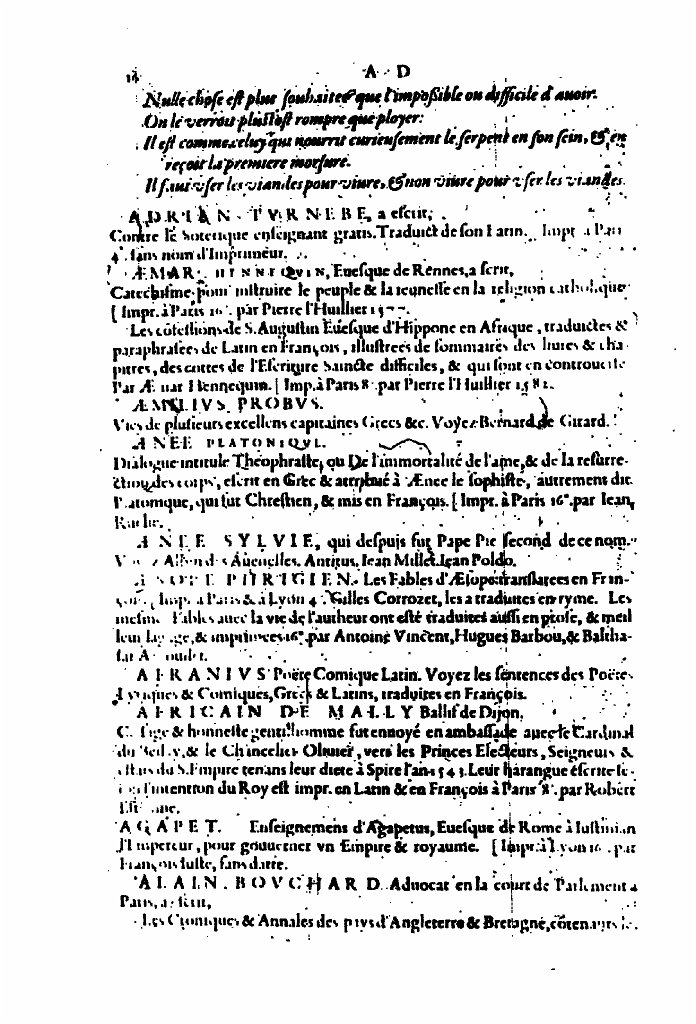 14 A D
Nulle chose est plus souhaitee que l'impoßible ou difficile d'auoir.
On le verroit plustost rompre que ployer.
Il est comme celuy qui nourrit curieusement le serpent en son sein, & en
reçoit la premiere morsure.
Il faut vser les viandes pour viure, & non viure pour vser les viandes.
ADRIAN TVRNEBE, a escrit,
Contre le Soterique enseignant gratis. Traduict de son Latin. Impr. a Pari
4°. sans nom d'Imprimeur.
ÆMAR HENNEQVIN, Euesque de Rennes, a scrit,
Catechisme pour instruire le peuple & la ieunesse en la religion catholique
[Impr. à Paris 16°. par Pierre l'Huillier 1577.
Les cõfessions de S. Augustin Euesque d'Hippone en Afrique, traduictes &
paraphrasees de Latin en François, illustrees de sommaires des liures & cha-
pitres, des cottes de l'Escriture Saincte difficiles, & qui sont en controuerse
Par Æmar Hennequin. [Imp. à Paris 8°. par Pierre l'Huillier 1582.
ÆMILIVS PROBVS.
Vies de plusieurs excellens capitaines Grecs &c. Voyez Bernard de Girard.
ÆNEE PLATONIQVE.
Dialogue intitulé Theophraste, ou De l'immortalité de l'ame, & de la resurre-
ction des corps, escrit en Grec & attribué à Ænee le sophiste, autrement dit
Platonique, qui fut Chrestien, & mis en François. [Impr. à Paris 16°. par Iean
Ruelle.
ÆNEE SYLVIE, qui despuis fut Pape Pie second de ce nom.
Voyez Albin des Auenelles. Antitus. Iean Millet. Iean Poldo.
ÆSOPE PHRIGIEN. Les Fables d'Æsope translatees en Fran-
çois, Imp. a Paris & à Lyon 4°. Gilles Corrozet, les a traduites en ryme. Les
mesme Fables auec la vie de l'autheur ont esté traduites aussi en prose, & met
leur langage, & imprimees 16°. par Antoine Vincent, Hugues Barbou, & Baltha-
sar Arnoullet.
AFRANIVS Poëte Comique Latin. Voyez les sentences des Poëtes
Lyriques & Comiques, Grecs & Latins, traduites en François.
AFRICAIN DE MALLY Baillif de Dijon,
C. sage & honneste gentilhomme fut enuoyé en ambassade auec le Cardinal
du Bellay, & le Chancelier Oliuier, vers les Princes Eslecteurs, Seigneurs &
estats du S. Empire tenans leur diete à Spire l'an 1543. Leur harangue escrite se-
lon l'intention du Roy est impr. en Latin & en François à Paris 8°. par Robert
Estienne.
AGAPET. Enseignemens d'Agapetus, Euesque de Rome à Iustinian
l'Empereur, pour gouuerner vn Empire & royaume. [Impr. à Lyon 16. par
François Iuste, sans datte.
ALAIN BOVCHARD Aduocat en la court de Parlement a
Paris, a escrit,
Les Croniques & Annales des pays d'Angleterre & Bretagne, cõtenants le.